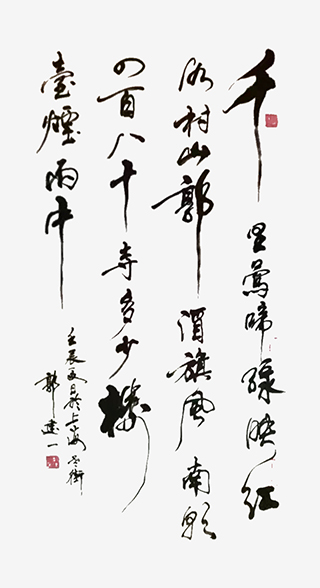 千里鶯啼綠映红
水村山郭酒旗风南朝
四百八十寺多少楼
臺煙雨中
壬辰夏日於上海
郭建一